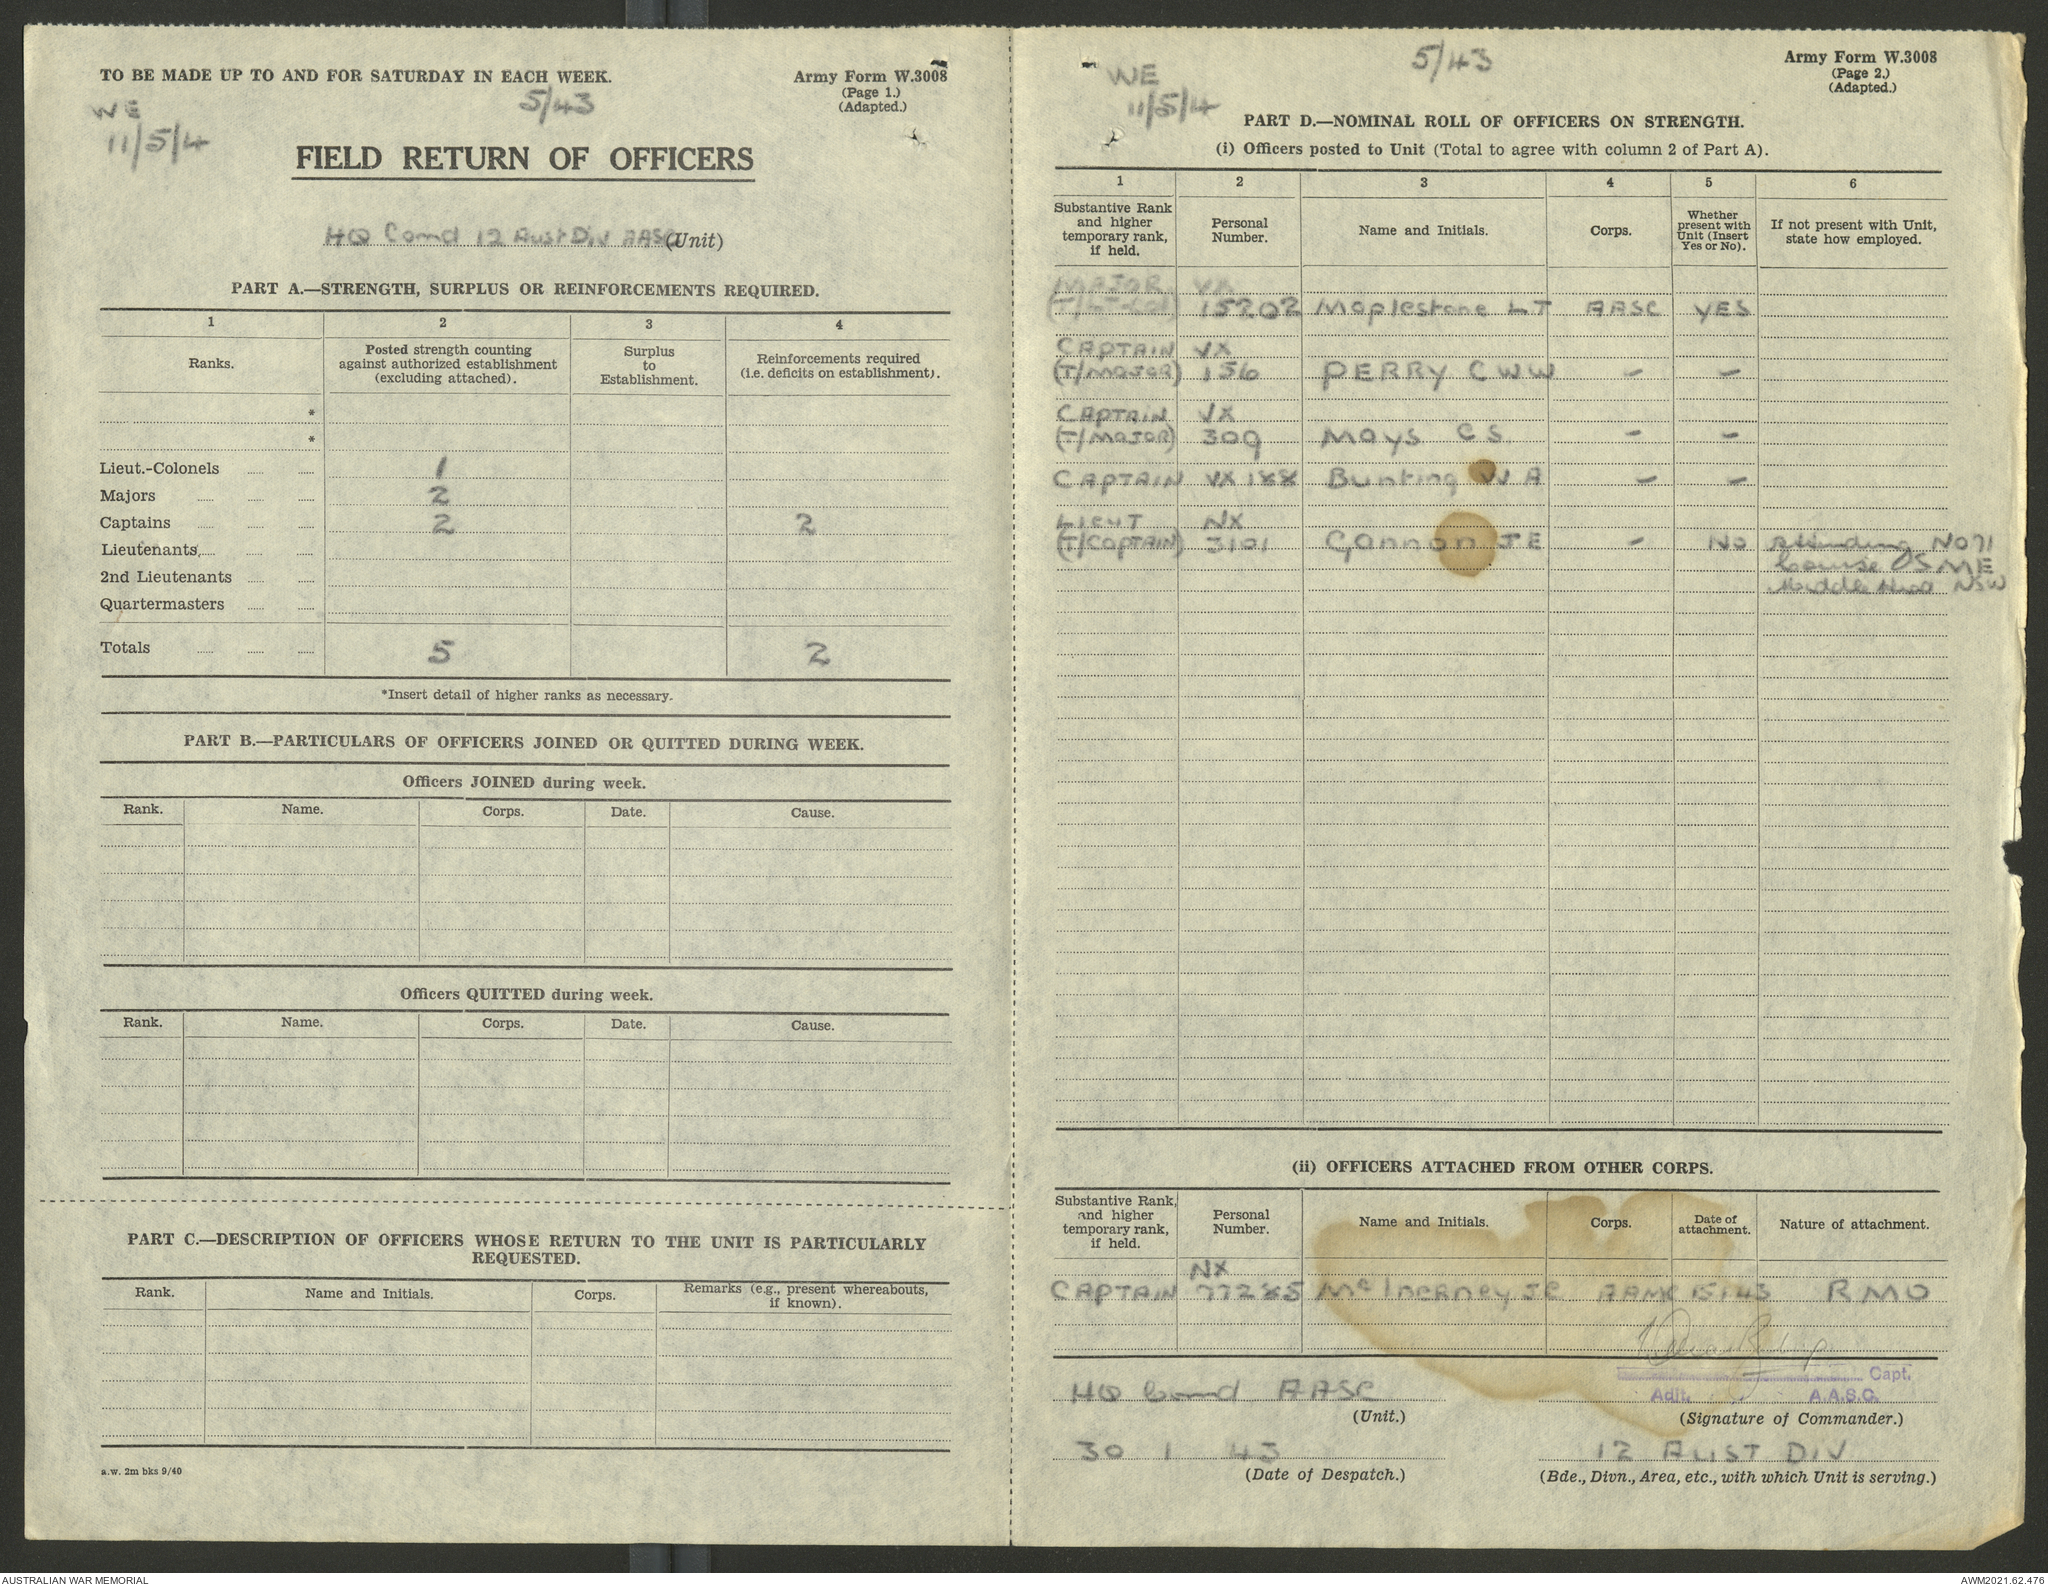 TO BE MADE UP TO AND FOR SATURDAY IN EACH WEEK.
Army Form W.3008
(Page 1.)
(Adapted.)
WE
11/5/4
5/43
FIELD RETURN OF OFFICERS
HQ Comd 12 Aust Div AASC (Unit)
PART A.—STRENGTH, SURPLUS OR REINFORCEMENTS REQUIRED.
1 2 3 4
Ranks. Posted strength counting against authorized establishment (excluding attached). Surplus to Establishment. Reinforcements required (i.e. deficits on establishment).
*
*
Lieut.-Colonels 1
Majors 2
Captains 2 2
Lieutenants
2nd Lieutenants
Quartermasters
Totals 5 2
*Insert detail of higher ranks as necessary.
PART B.—PARTICULARS OF OFFICERS JOINED OR QUITTED DURING WEEK.
Officers JOINED during week.
Rank. Name. Corps. Date. Cause.
Officers QUITTED during week.
Rank. Name. Corps. Date. Cause.
PART C.—DESCRIPTION OF OFFICERS WHOSE RETURN TO THE UNIT IS PARTICULARLY
REQUESTED.
Rank. Name and Initials. Corps. Remarks (e.g., present whereabouts, if known).
a.w. 2m bks 9/40
WE
11/5/4
5/43
Army Form W.3008
(Page 2.)
(Adapted.)
PART D.—NOMINAL ROLL OF OFFICERS ON STRENGTH.
(i) Officers posted to Unit (Total to agree with column 2 of Part A).
1 2 3 4 5 6
Substantive Rank and higher temporary rank, if held. Personal Number. Name and Initials. Corps. Whether present with Unit (Insert Yes or No). If not present with Unit, state how employed.
MAJOR VX
(T/LT-COL) 15202 Maplestone LT AASC YES
CAPTAIN VX
(T/MAJOR) 156 PERRY CWW - -
CAPTAIN VX
(T/MAJOR) 309 Mays CS - -
CAPTAIN VX188 Bunting WA - -
LIEUT NX
(T/CAPTAIN) 3101 Gannon JE - NO Attending NO71
Course OSME
Middle Head NSW
(ii) OFFICERS ATTACHED FROM OTHER CORPS.
Substantive Rank, and higher temporary rank, if held. Personal Number. Name and Initials. Corps. Date of attachment. Nature of attachment.
NX
CAPTAIN 77285 McInerney JE RMO
Capt.
Adjt. A.A.S.C.
HQ Comd AASC
(Unit.) (Signature of Commander.)
30 1 43 12 AUST DIV
(Date of Despatch.) (Bde., Divn., Area, etc., with which Unit is serving.)
AUSTRALIAN WAR MEMORIAL
AWM2021.62.476